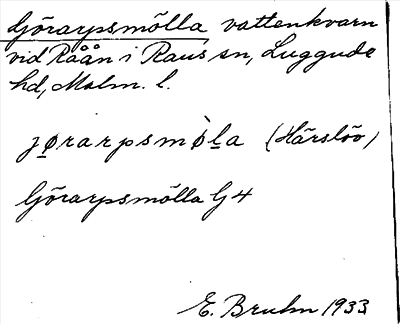 Görarpsmölla vattenkvarn
vid Råån i Raus sn, Luggude
hd, Malm. l.
jørarpsmø̀l̲a (Härslöv)
Görarpsmölla G4
E. Bruhn 1933